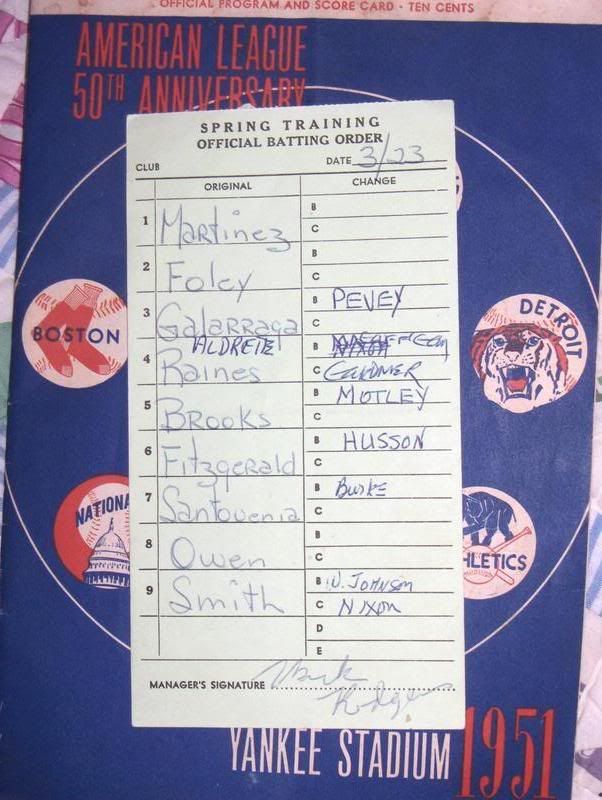 OFFICIAL PROGRAM AND SCORE CARD · TEN CENTS
AMERICAN LEAGUE
50TH ANNIVERSARY
SPRING TRAINING
OFFICIAL BATTING ORDER
CLUB DATE 3/23
ORIGINAL CHANGE
1 Martinez B
C
2 Foley B
C
3 Galarraga B PEVEY
C
ALDRETE
4 Raines B NIXON
C GARDNER
5 Brooks B MOTLEY
C
6 Fitzgerald B HUSSON
C
7 Santovenia B Burke
C
8 Owen B
C
9 Smith B W. JOHNSON
C NIXON
D
E
MANAGER'S SIGNATURE
BOSTON
DETROIT
NATIONA
HLETICS
YANKEE STADIUM 1951